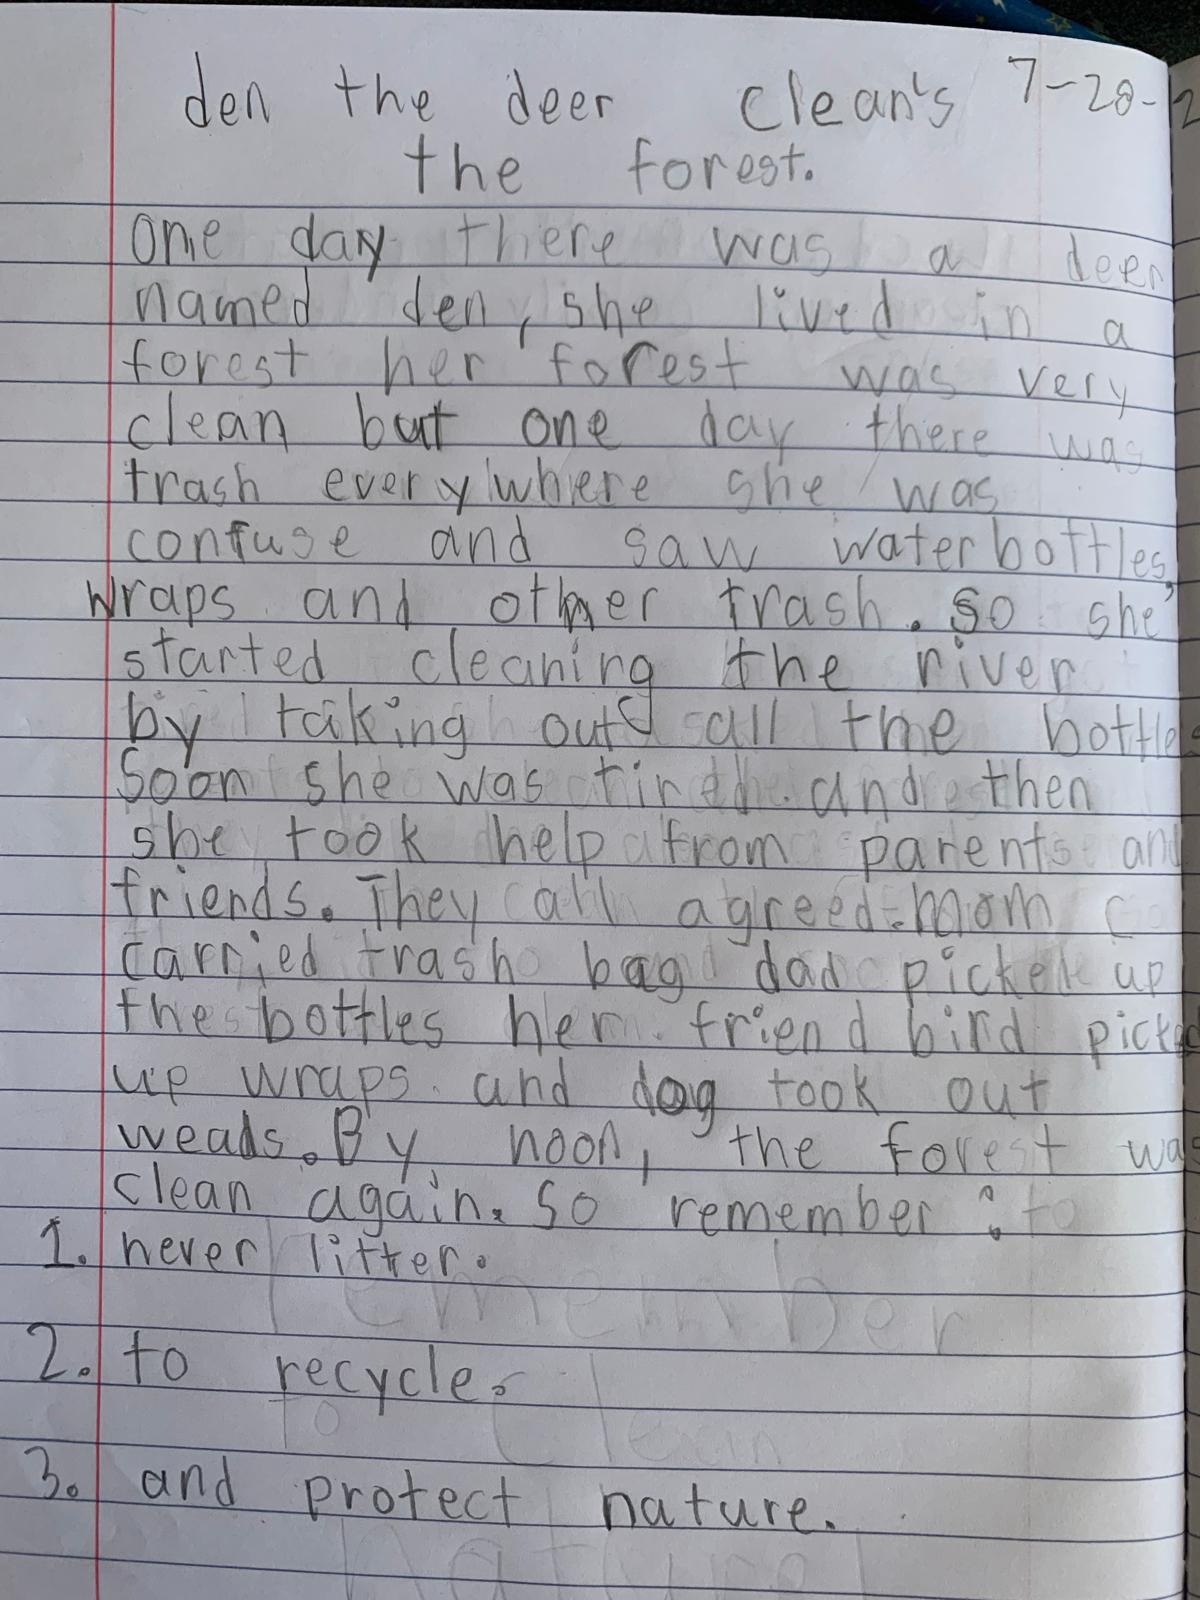 den the deer clean's 7-28-2
the forest.
one day there was a deer
named den, she lived in a
forest her forest was very
clean but one day there was
trash everywhere she was
confuse and saw water bottles,
wraps and other trash. so she
started cleaning the river
by taking out all the bottles
Soon she was tired and then
she took help from parents and
friends. They all agreed. mom
carried trash bag dad picked up
the bottles her friend bird picked
up wraps and dog took out
weads. By noon, the forest was
clean again. so remember : to
1. never litter.
2. to recycle.
3. and protect nature.